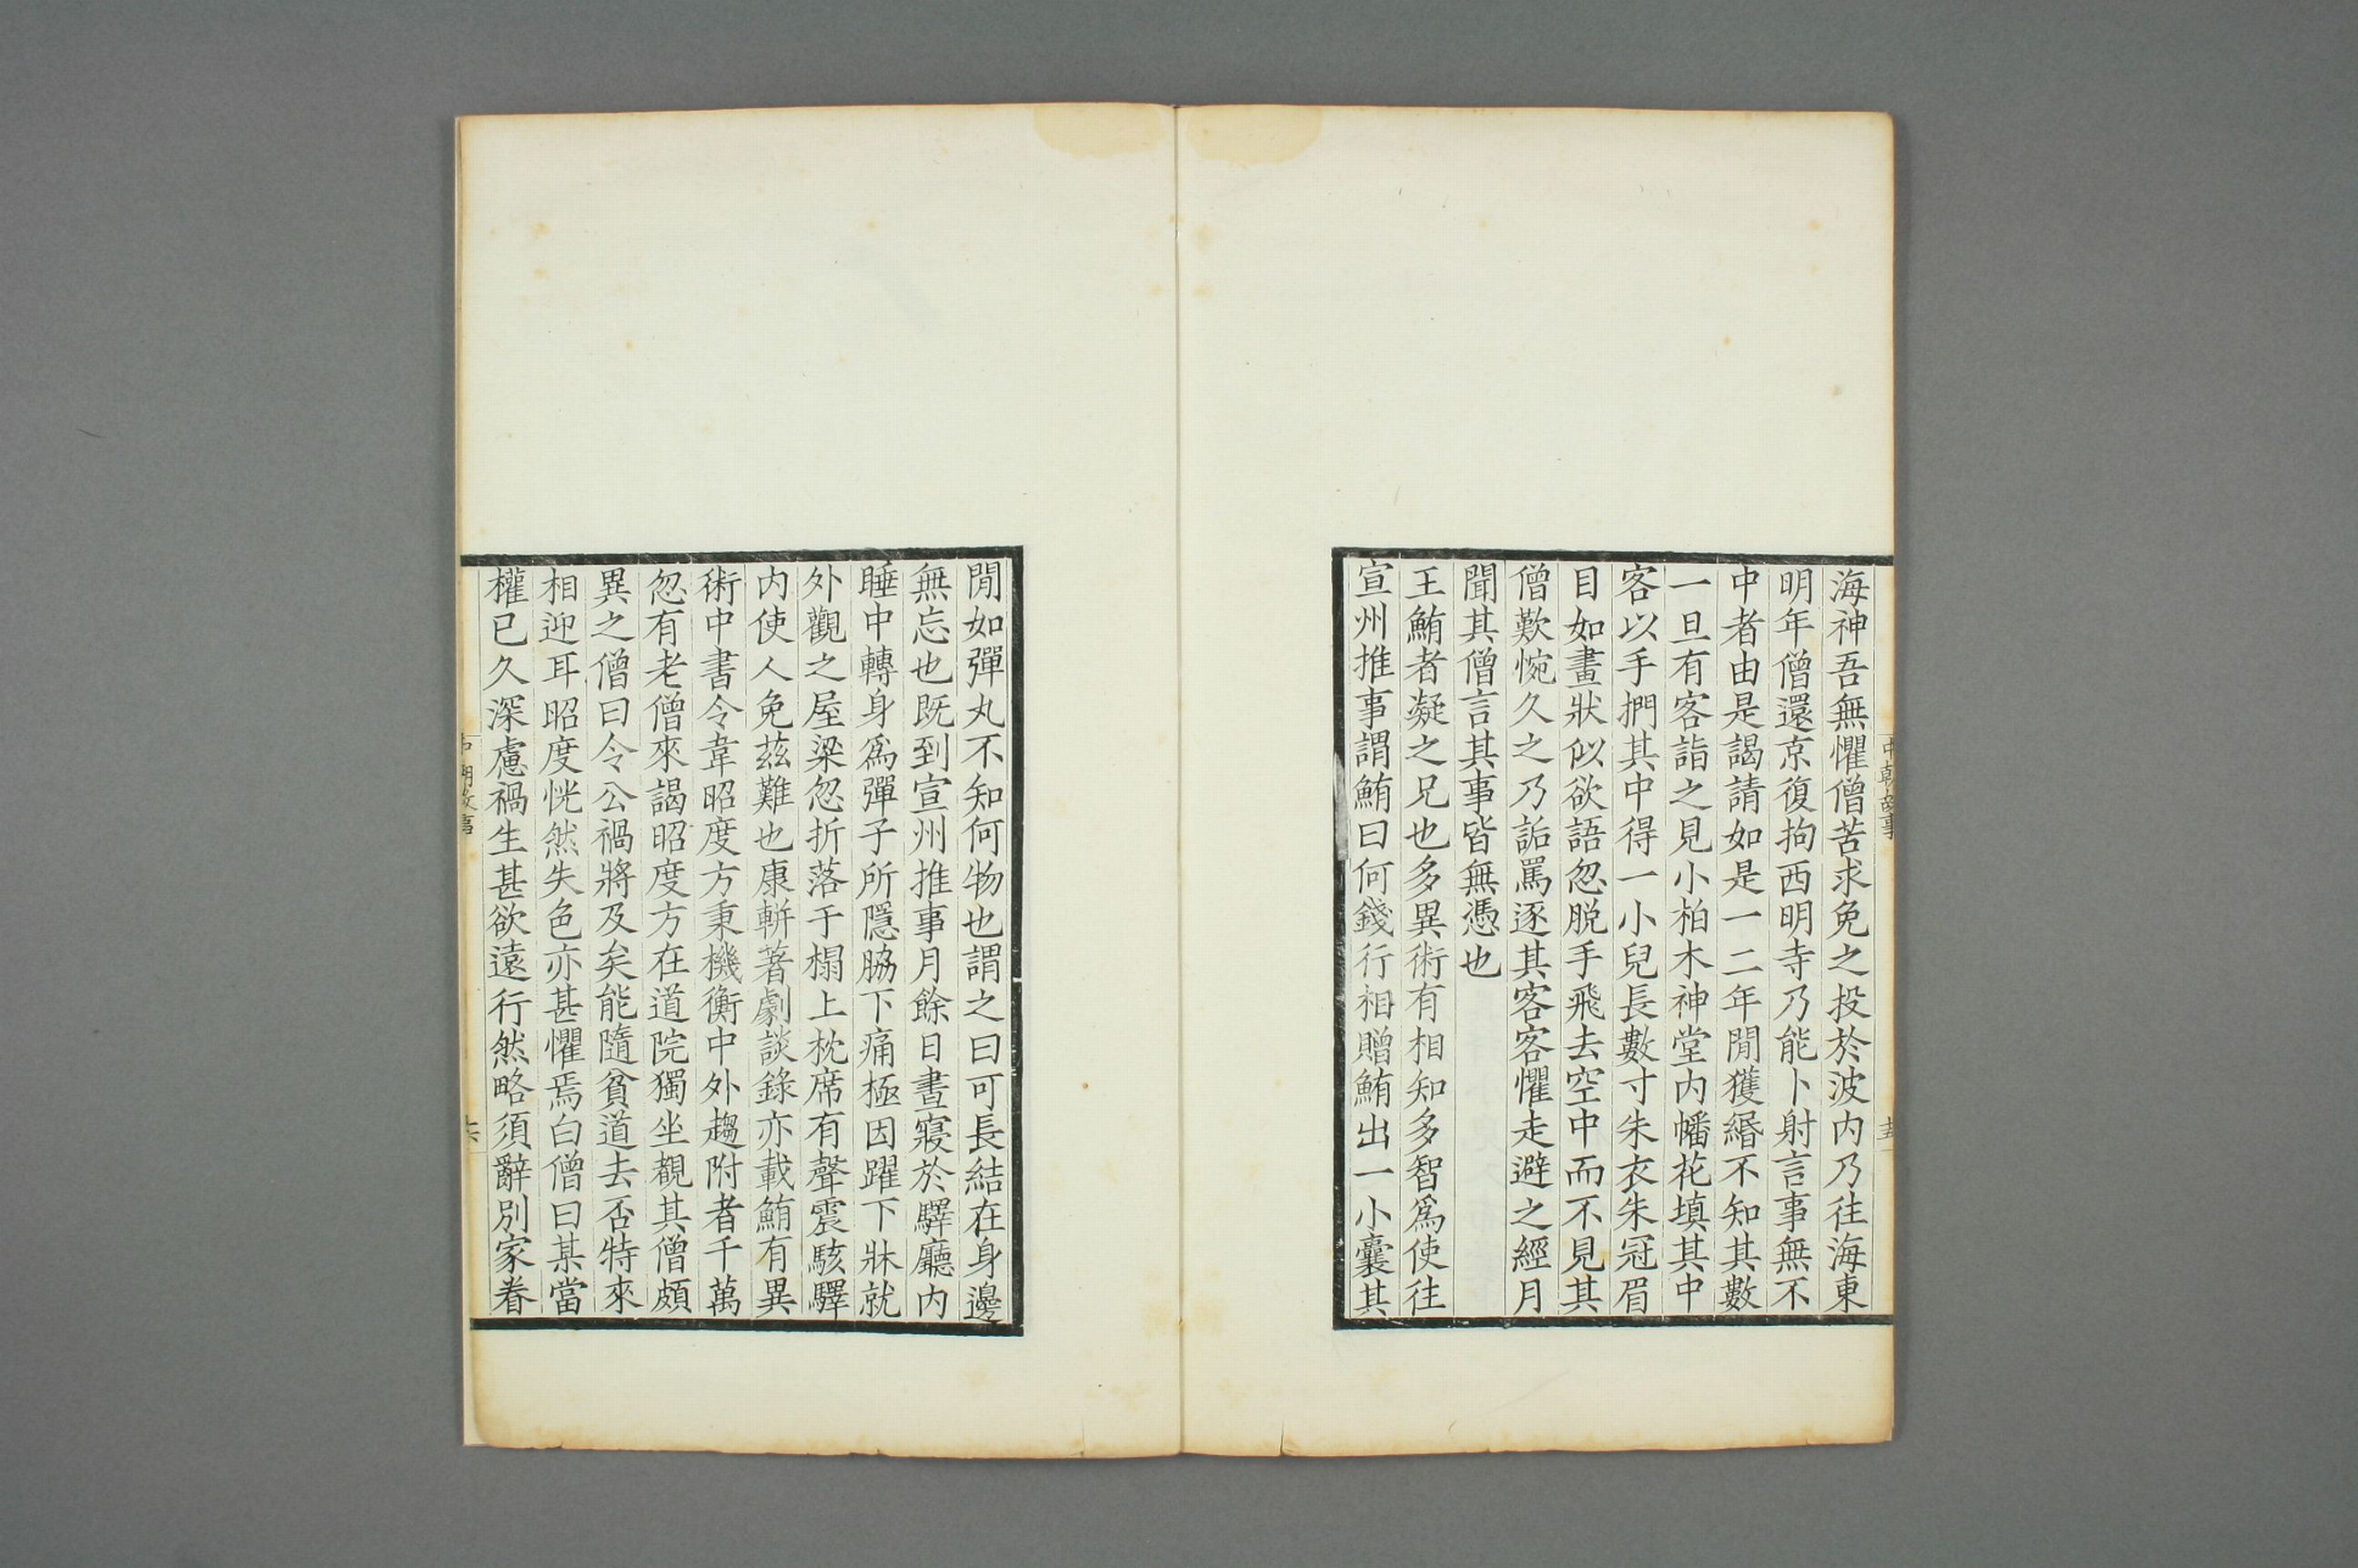 中朝故事
十五
海神吾無懼僧苦求免之投於波内乃往海東
明年僧還京復拘西明寺乃能卜射言事無不
中者由是謁請如是一二年閒獲緡不知其數
一旦有客詣之見小柏木神堂内幡花填其中
客以手捫其中得一小兒長數寸朱衣朱冠眉
目如畫狀似欲語忽脱手飛去空中而不見其
僧歎惋久之乃詬罵逐其客客懼走避之經月
聞其僧言其事皆無憑也
王鮪者凝之兄也多異術有相知多智爲使往
宣州推事謂鮪曰何錢行相贈鮪出一小囊其
閒如彈丸不知何物也謂之曰可長結在身邊
無忘也既到宣州推事月餘日晝寢於驛廳内
睡中轉身爲彈子所隱脇下痛極因躍下牀就
外觀之屋梁忽折落于榻上枕席有聲震駭驛
内使人免茲難也康軿著劇談錄亦載鮪有異
術中書令韋昭度方秉機衡中外趨附者千萬
忽有老僧來謁昭度方在道院獨坐覩其僧頗
異之僧曰令公禍將及矣能隨貧道去否特來
相迎耳昭度恍然失色亦甚懼焉白僧曰某當
權已久深慮禍生甚欲遠行然略須辭別家眷
中朝故事
十六